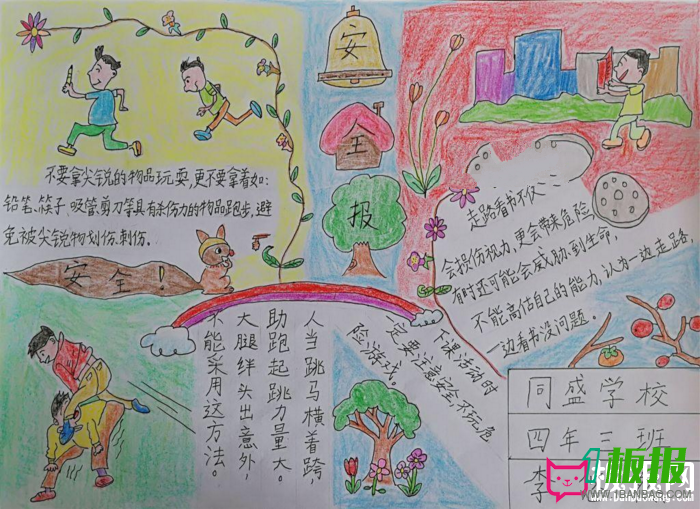 安
全
报
不要拿尖锐的物品玩耍,更不要拿着如:
铅笔、筷子、吸管、剪刀等具有杀伤力的物品跑步,避
免被尖锐物划伤、刺伤。
安全!
走路看书不仅
会损伤视力,更会带来危险,
有时还可能会威胁到生命,
不能高估自己的能力,认为一边走路
一边看书没问题。
人当跳马横着跨
助跑起跳力量大。
大腿绊头出意外,
不能采用这方法。
下课活动时
一定要注意安全不玩危
险游戏。
同盛学校
四年三班
李
1板报
WWW.1BANBAO.COM